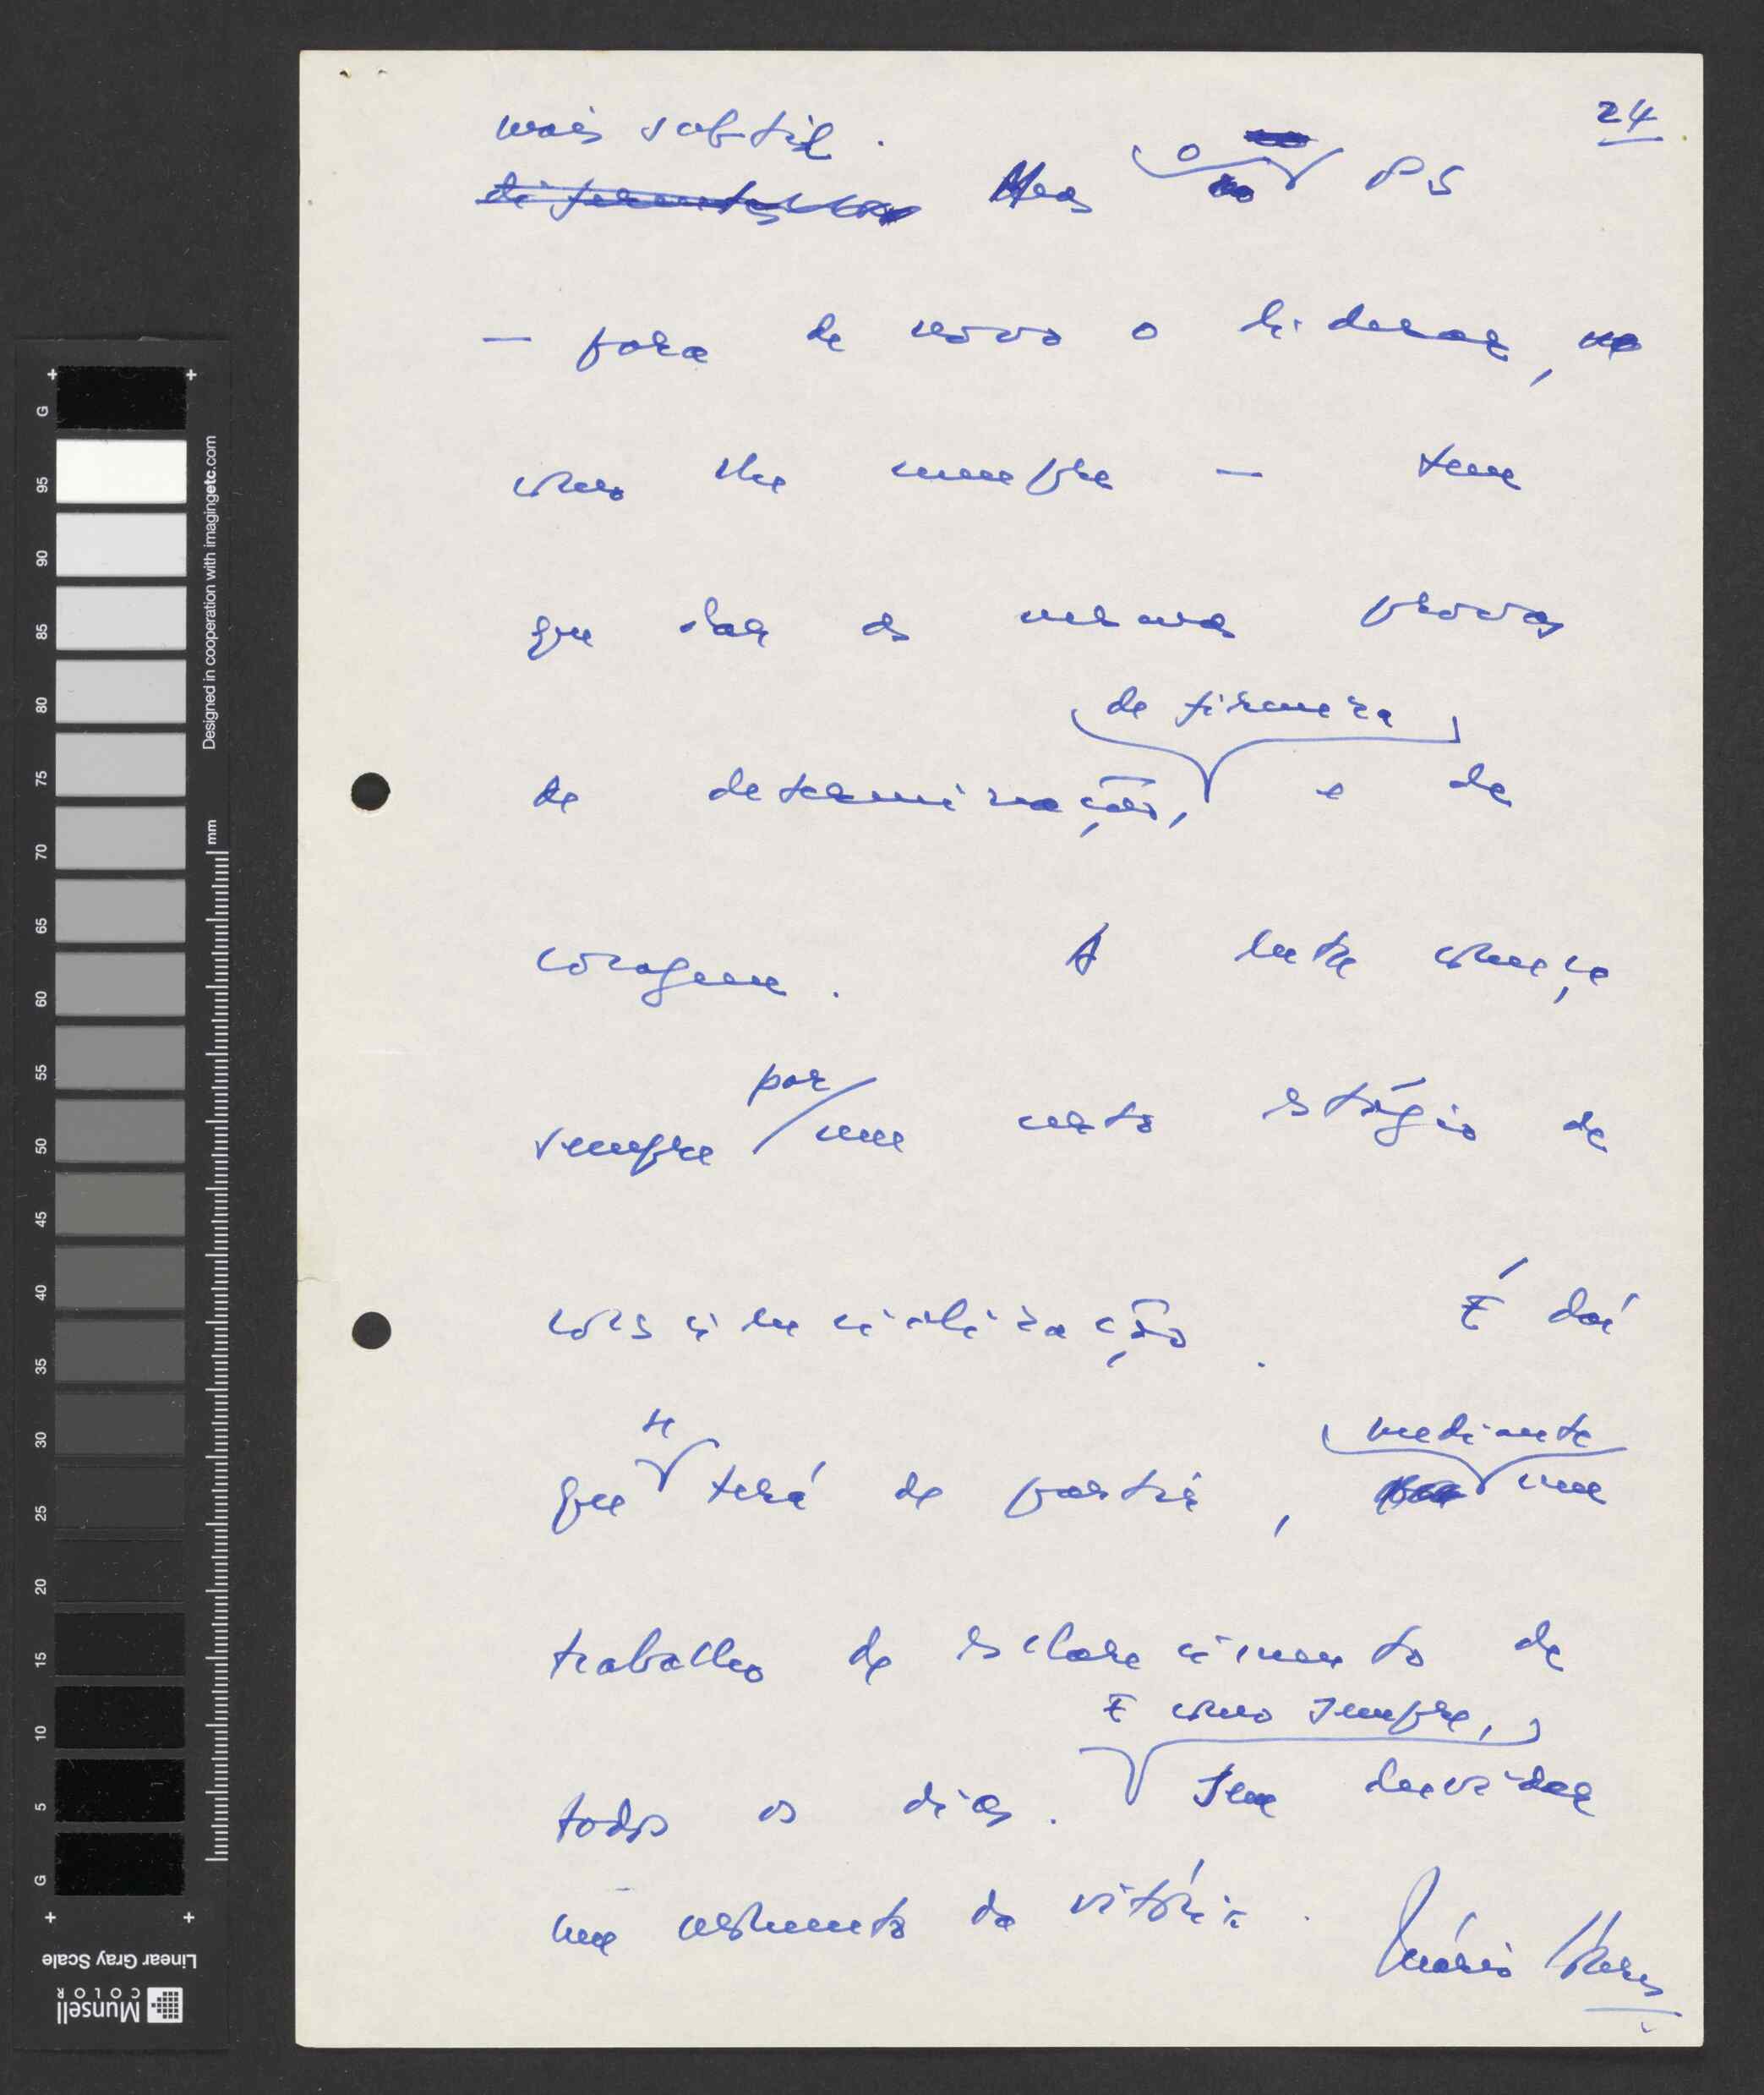 24
mais subtil.
diferentes Mas o PS
— para de novo o liderar,
como lhe cumpre — tem
que dar as mesmas provas
de firmeza
de determinação, e de
coragem. A luta começa
por
sempre um certo estágio de
consciencialização. É daí
se mediante
que terá de partir, um
trabalho de esclarecimento de
E como sempre,
todos os dias. Sem duvidar
um momento da vitória.
Mário Soares
G
95
90
85
80
75
70
65
60
55
50
45
40
35
30
25
20
15
10
5
G
Designed in cooperation with imagingetc.com
mm
Linear Gray Scale
Munsell
COLOR